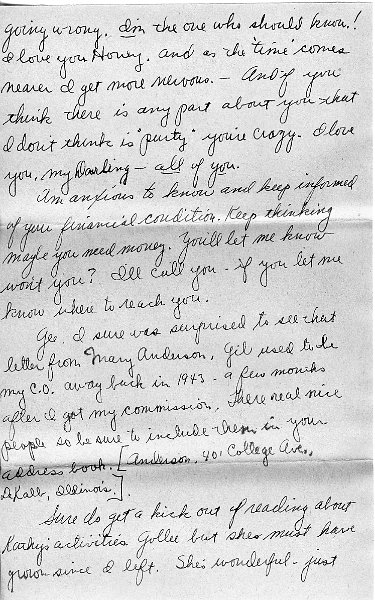 going wrong. I'm the one who should know!
I love you Honey. And as the 'time' comes
nearer I get more nervous. — And if you
think there is any part about you that
I don't think is "purty" you're crazy. I love
you, my Darling — all of you.
Am anxious to know and keep informed
of your financial condition. Keep thinking
maybe you need money. You'll let me know
won't you? I'll call you - if you let me
know where to reach you.
Yes, I sure was surprised to see that
letter from Mary Anderson. Gil used to be
my C.O. away back in 1943 - a few months
after I got my commission. There real nice
people so be sure to include them in your
address book. [Anderson, 401 College Ave.,
DeKalb, Illinois.].
Sure do get a kick out of reading about
Kathy's activities. Gollee but she must have
grown since I left. She's wonderful - just